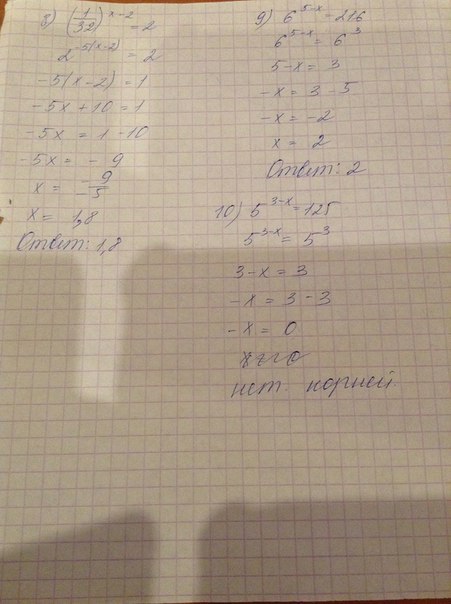 8) (1/32)^(x-2) = 2
2^(-5(x-2)) = 2
-5(x-2) = 1
-5x + 10 = 1
-5x = 1 - 10
-5x = - 9
x = -9/-5
x = 1,8
Ответ: 1,8
9) 6^(5-x) = 216
6^(5-x) = 6^3
5-x = 3
-x = 3 - 5
-x = -2
x = 2
Ответ: 2
10) 5^(3-x) = 125
5^(3-x) = 5^3
3-x = 3
-x = 3 - 3
-x = 0
нет корней.